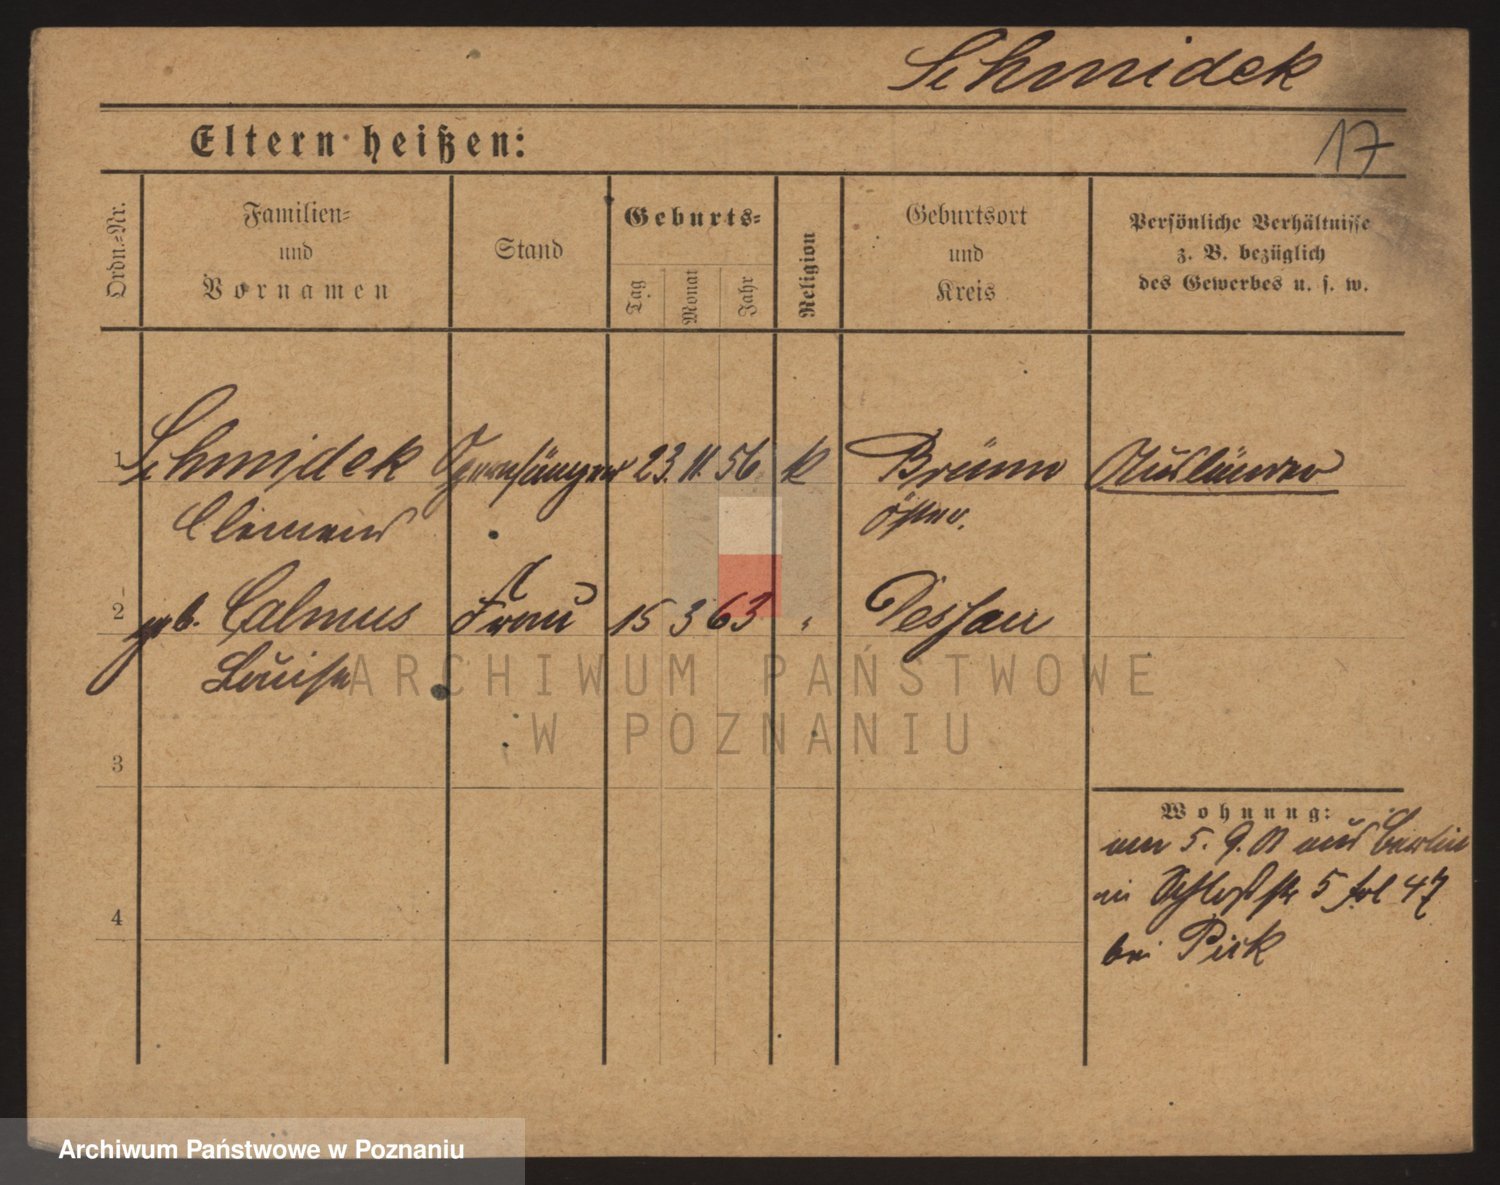 Schmidek
17
Eltern heißen:
Ordn.=Nr.
Familien=
und
Vornamen
Stand
Geburts=
Tag
Monat
Jahr
Religion
Geburtsort
und
Kreis
Persönliche Verhältnisse
z. B. bezüglich
des Gewerbes u. s. w.
1 Schmidek Opernsänger 23. 11. 56 k Brünn Ausländer
Clemens Öster.
2 geb. Calmus Frau 15 3 63 " Dessau
Louise
ARCHIWUM PAŃSTWOWE
W POZNANIU
3
Wohnung:
am 5. 9. 01 aus Berlin
in Schloßstr 5 47
bei Pick
4
Archiwum Państwowe w Poznaniu